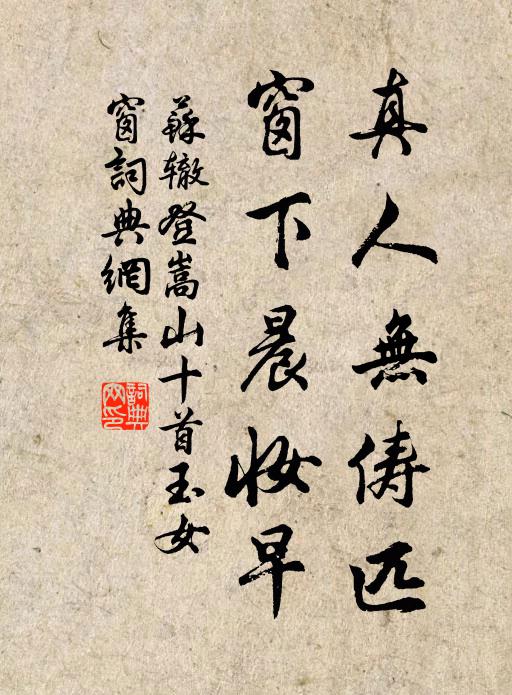 真人無俦匹
窗下晨妆早
蘇辙登嵩山十首玉女
窗詞典網集
詞典
网印